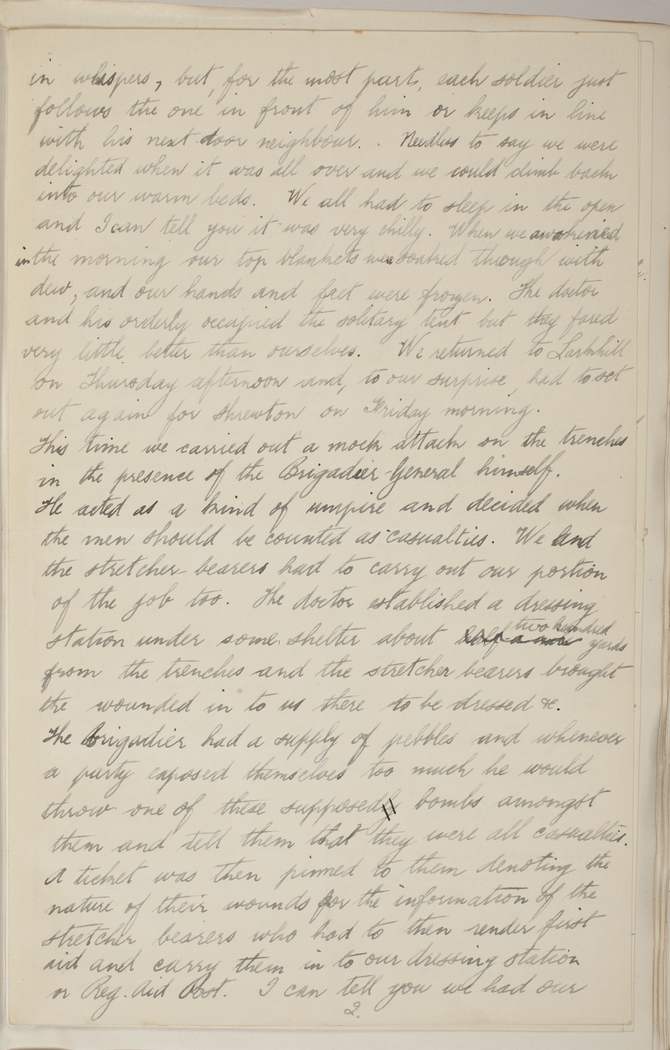 in whispers, but, for the most part, each soldier just
follows the one in front of him or keeps in line
with his next door neighbour. . Needless to say we were
delighted when it was all over and we could climb back
into our warm beds. We all had to sleep in the open
and I can tell you it was very chilly. When we awakened
in the morning our top blankets was soaked through with
dew, and our hands and feet were frozen. The doctor
and his orderly occupied the solitary tent but they fared
very little better than ourselves. We returned to Larkhill
on Thursday afternoon and, to our surprise, had to set
out again for Shrewton on Friday morning.
This time we carried out a mock attack on the trenches
in the presence of the Brigadier-General himself.
He acted as a kind of umpire and decided when
the men should be counted as casualties. We and
the stretcher-bearers had to carry out our portion
of the job too. The doctor established a dressing
station under some shelter about half a mile two hundred yards
from the trenches and the stretcher bearers brought
the wounded in to us there to be dressed &c.
The Brigadier had a supply of pebbles and whenever
a party exposed themselves too much he would
throw one of these supposed bombs amongst
them and tell them that they were all casualties.
A ticket was then pinned to them denoting the
nature of their wounds for the information of the
stretcher bearers who had to then render first
aid and carry them in to our dressing station
or Reg. Aid Post. I can tell you we had our
2.